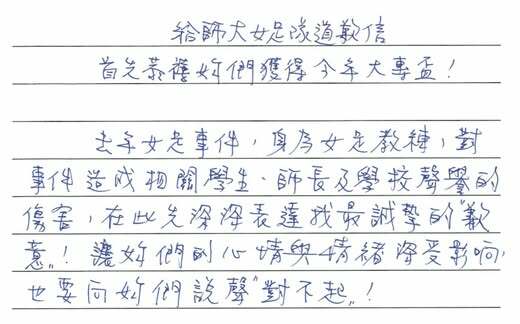 給師大女足隊道歉信
首先恭禧妳們獲得今年大專盃!
去年女足事件,身為女足教練,對
事件造成相關學生、師長及學校聲譽的
傷害,在此先深深表達我最誠摯的"歉
意"!讓妳們的心情與情緒深受影响,
也要向妳們說聲"對不起"!